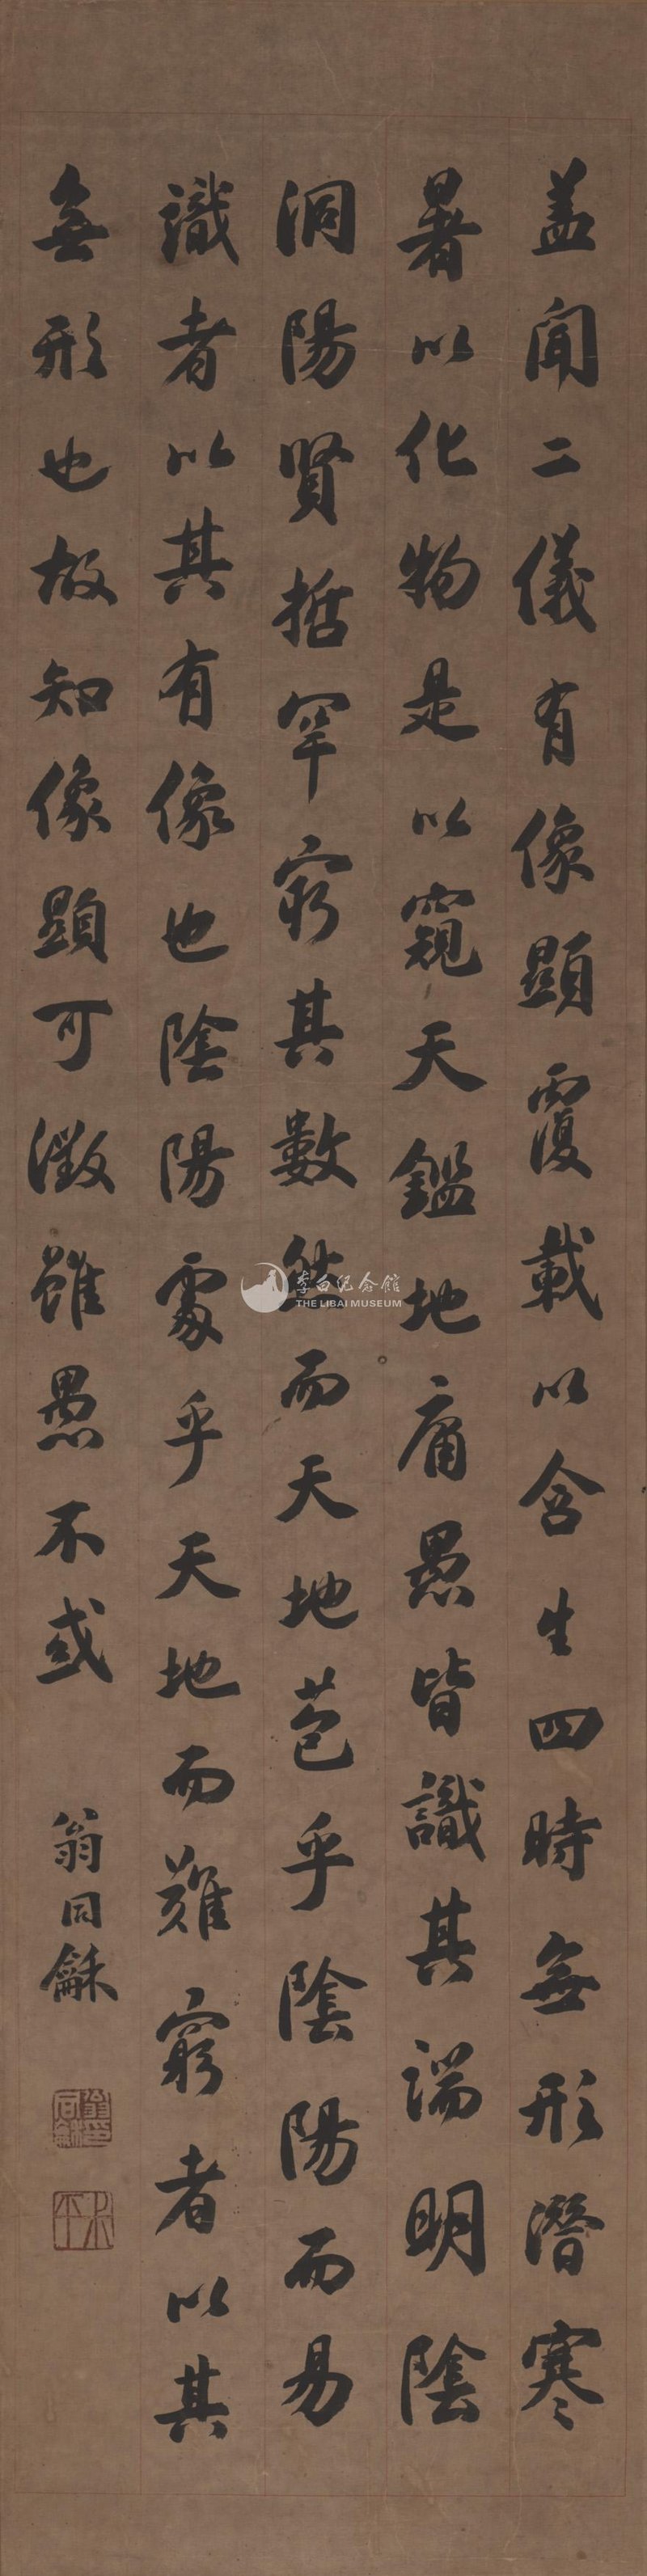 盖闻二儀有像顯覆載以含生四時無形潛寒
暑以化物是以窺天鑑地庸愚皆識其端明陰
洞陽賢哲罕窮其數然而天地苞乎陰陽而易
識者以其有像也陰陽處乎天地而難窮者以其
無形也故知像顯可徵雖愚不惑
翁同龢
翁同龢印
叔平
李白纪念馆
THE LIBAI MUSEUM